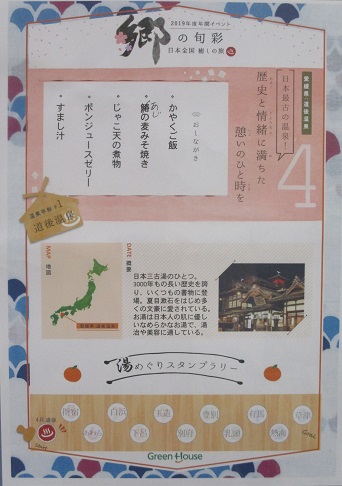 2019年度年間イベント
郷の旬彩
日本全国 癒しの旅
愛媛県 道後温泉
日本最古の温泉!
歴史と情緒に満ちた
憩いのひと時を
4
おしながき
・かやくご飯
・鯵の麦みそ焼き
あじ
・じゃこ天の煮物
・ポンジュースゼリー
・すまし汁
温泉手形 #1
道後温泉
MAP 地図
DATE 概要
日本三古湯のひとつ。
3000年もの長い歴史を誇
り、いくつもの書物に登
場。夏目漱石をはじめ多
くの文豪に愛されている。
お湯は日本人の肌に優し
いなめらかなお湯で、湯
治や美容に適している。
湯めぐりスタンプラリー
4月道後
START
指宿
白浜
玉造
登別
有馬
草津
下呂
別府
乳頭
熱海
GOAL
Green House